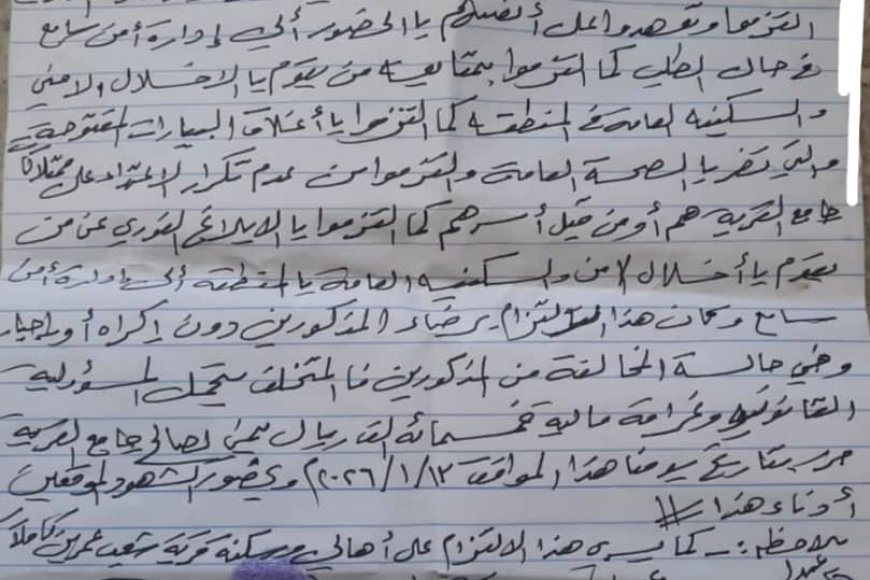 التزموا وتعهدوا على أنفسهم يا الحضور ألى إدارة أمن سامع
في حال الطلب كما التزموا بمتابعة من يقوم يا الاخلال ولامني
والسكينه العامة في المنطقة كما التزموا يا أغلاق البيارات المفتوحة
والتي تضر يا الصحة العامة والتزموا من عدم تكرار الاعتداء على ممتلاكات
جامع القرية هم أو من قبل أسرهم كما التزموا يا الابلاغ الفوري عن من
يقوم يا أخلال لامن والسكينيه العامة يا المنطقة ألى إدارة أمن
سامع وكان هذا الالتزام برضاء المذكورين دون إكراه أو إجبار
وفي حالة المخالفة من المذكورين فا المتخلف يتحمل المسؤولية
القانونية وغرامة مالية خمسمائة الف ريال يمني لصالح جامع القرية
حرر بتاريخ يومنا هذا الموافق ٢٠٢٦/١/١٣م وبحضور الشهود الموقعين
أدناء هذا //
ملاحظه :- كما يسري هذا الالتزام على أهالي وسكنة قرية شعب عمرين كاملاً